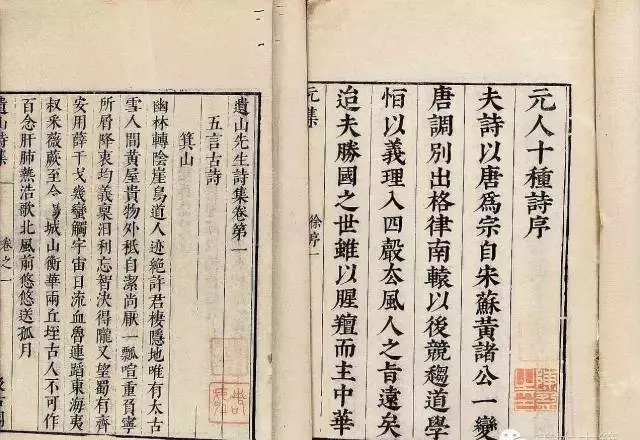 元人十種詩序
夫詩以唐爲宗自宋蘇黃諸公一變
唐調別出格律南轅以後競趨道學
恒以義理入四聲去風人之旨遠矣
迨夫勝國之世雖以腥羶而主中華
元集
徐序一
遺山先生詩集卷第一
五言古詩
箕山
幽林轉陰崖鳥道人迹絶許君棲隱地唯有太古
雪人間黃屋貴物外秪自潔尚厭一瓢喧重負寧
所屑降衷均義稟汩利忘智決得隴又望蜀有齊
安用薛干戈幾蠻觸宇宙日流血魯連蹈東海夷
叔采薇蕨至今陽城山衡華兩丘垤古人不可作
百念肝肺熱浩歌北風前悠悠送孤月
遺山詩集
卷之一